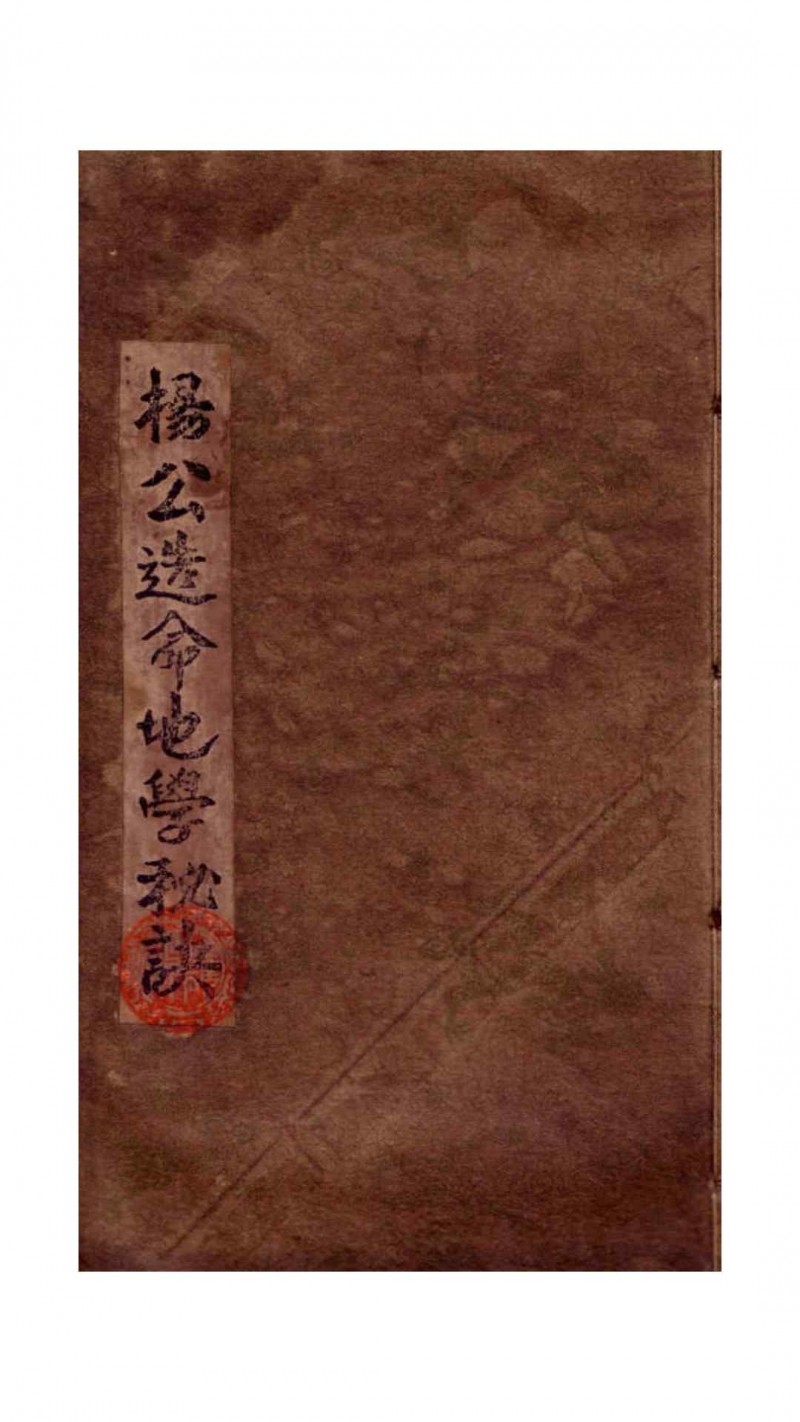 楊公造命地學秘訣